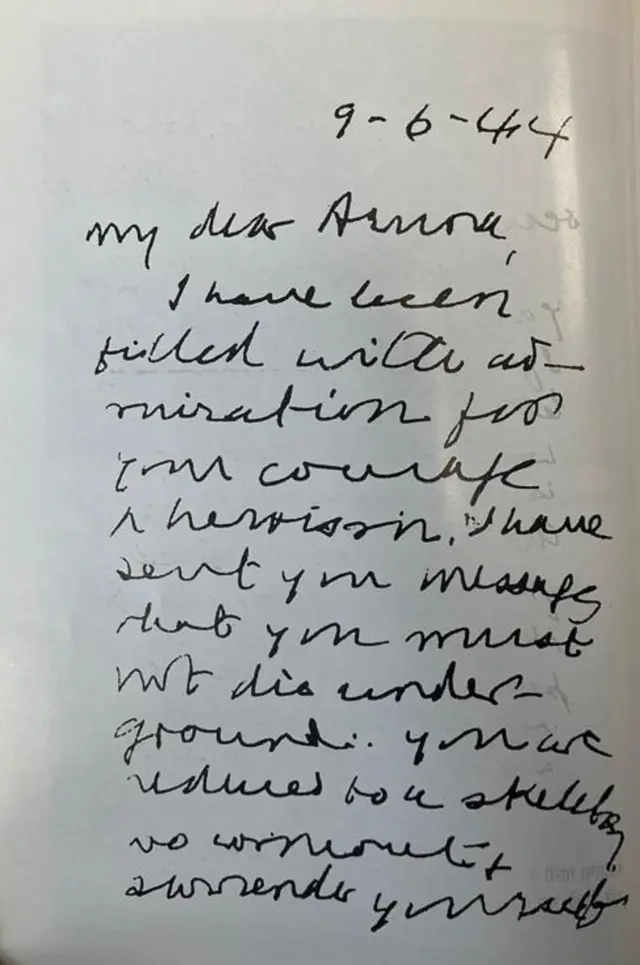 9-6-44
My dear Aruna,
I have been
filled with ad-
miration for
your courage
& heroism. I have
sent you messages
that you must
not die under-
ground. You are
reduced to a skeleton.
Do come out &
surrender yourself